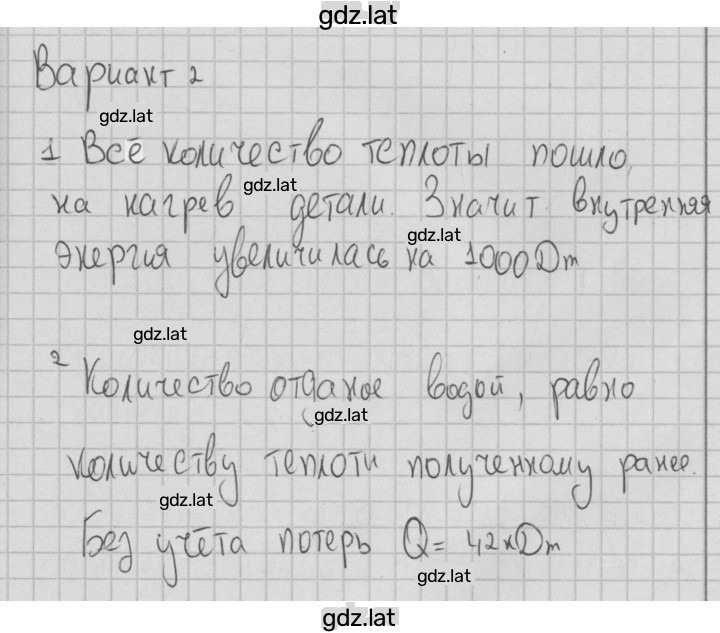 gdz.lat
Вариант 2
gdz.lat
1 Всё количество теплоты пошло
gdz.lat
на нагрев детали. Значит внутренняя
gdz.lat
энергия увеличилась на 1000Дж
gdz.lat
2 Количество отданое водой, равно
gdz.lat
количеству теплоти полученному ранее.
gdz.lat
Без учёта потерь Q = 42кДж
gdz.lat
gdz.lat